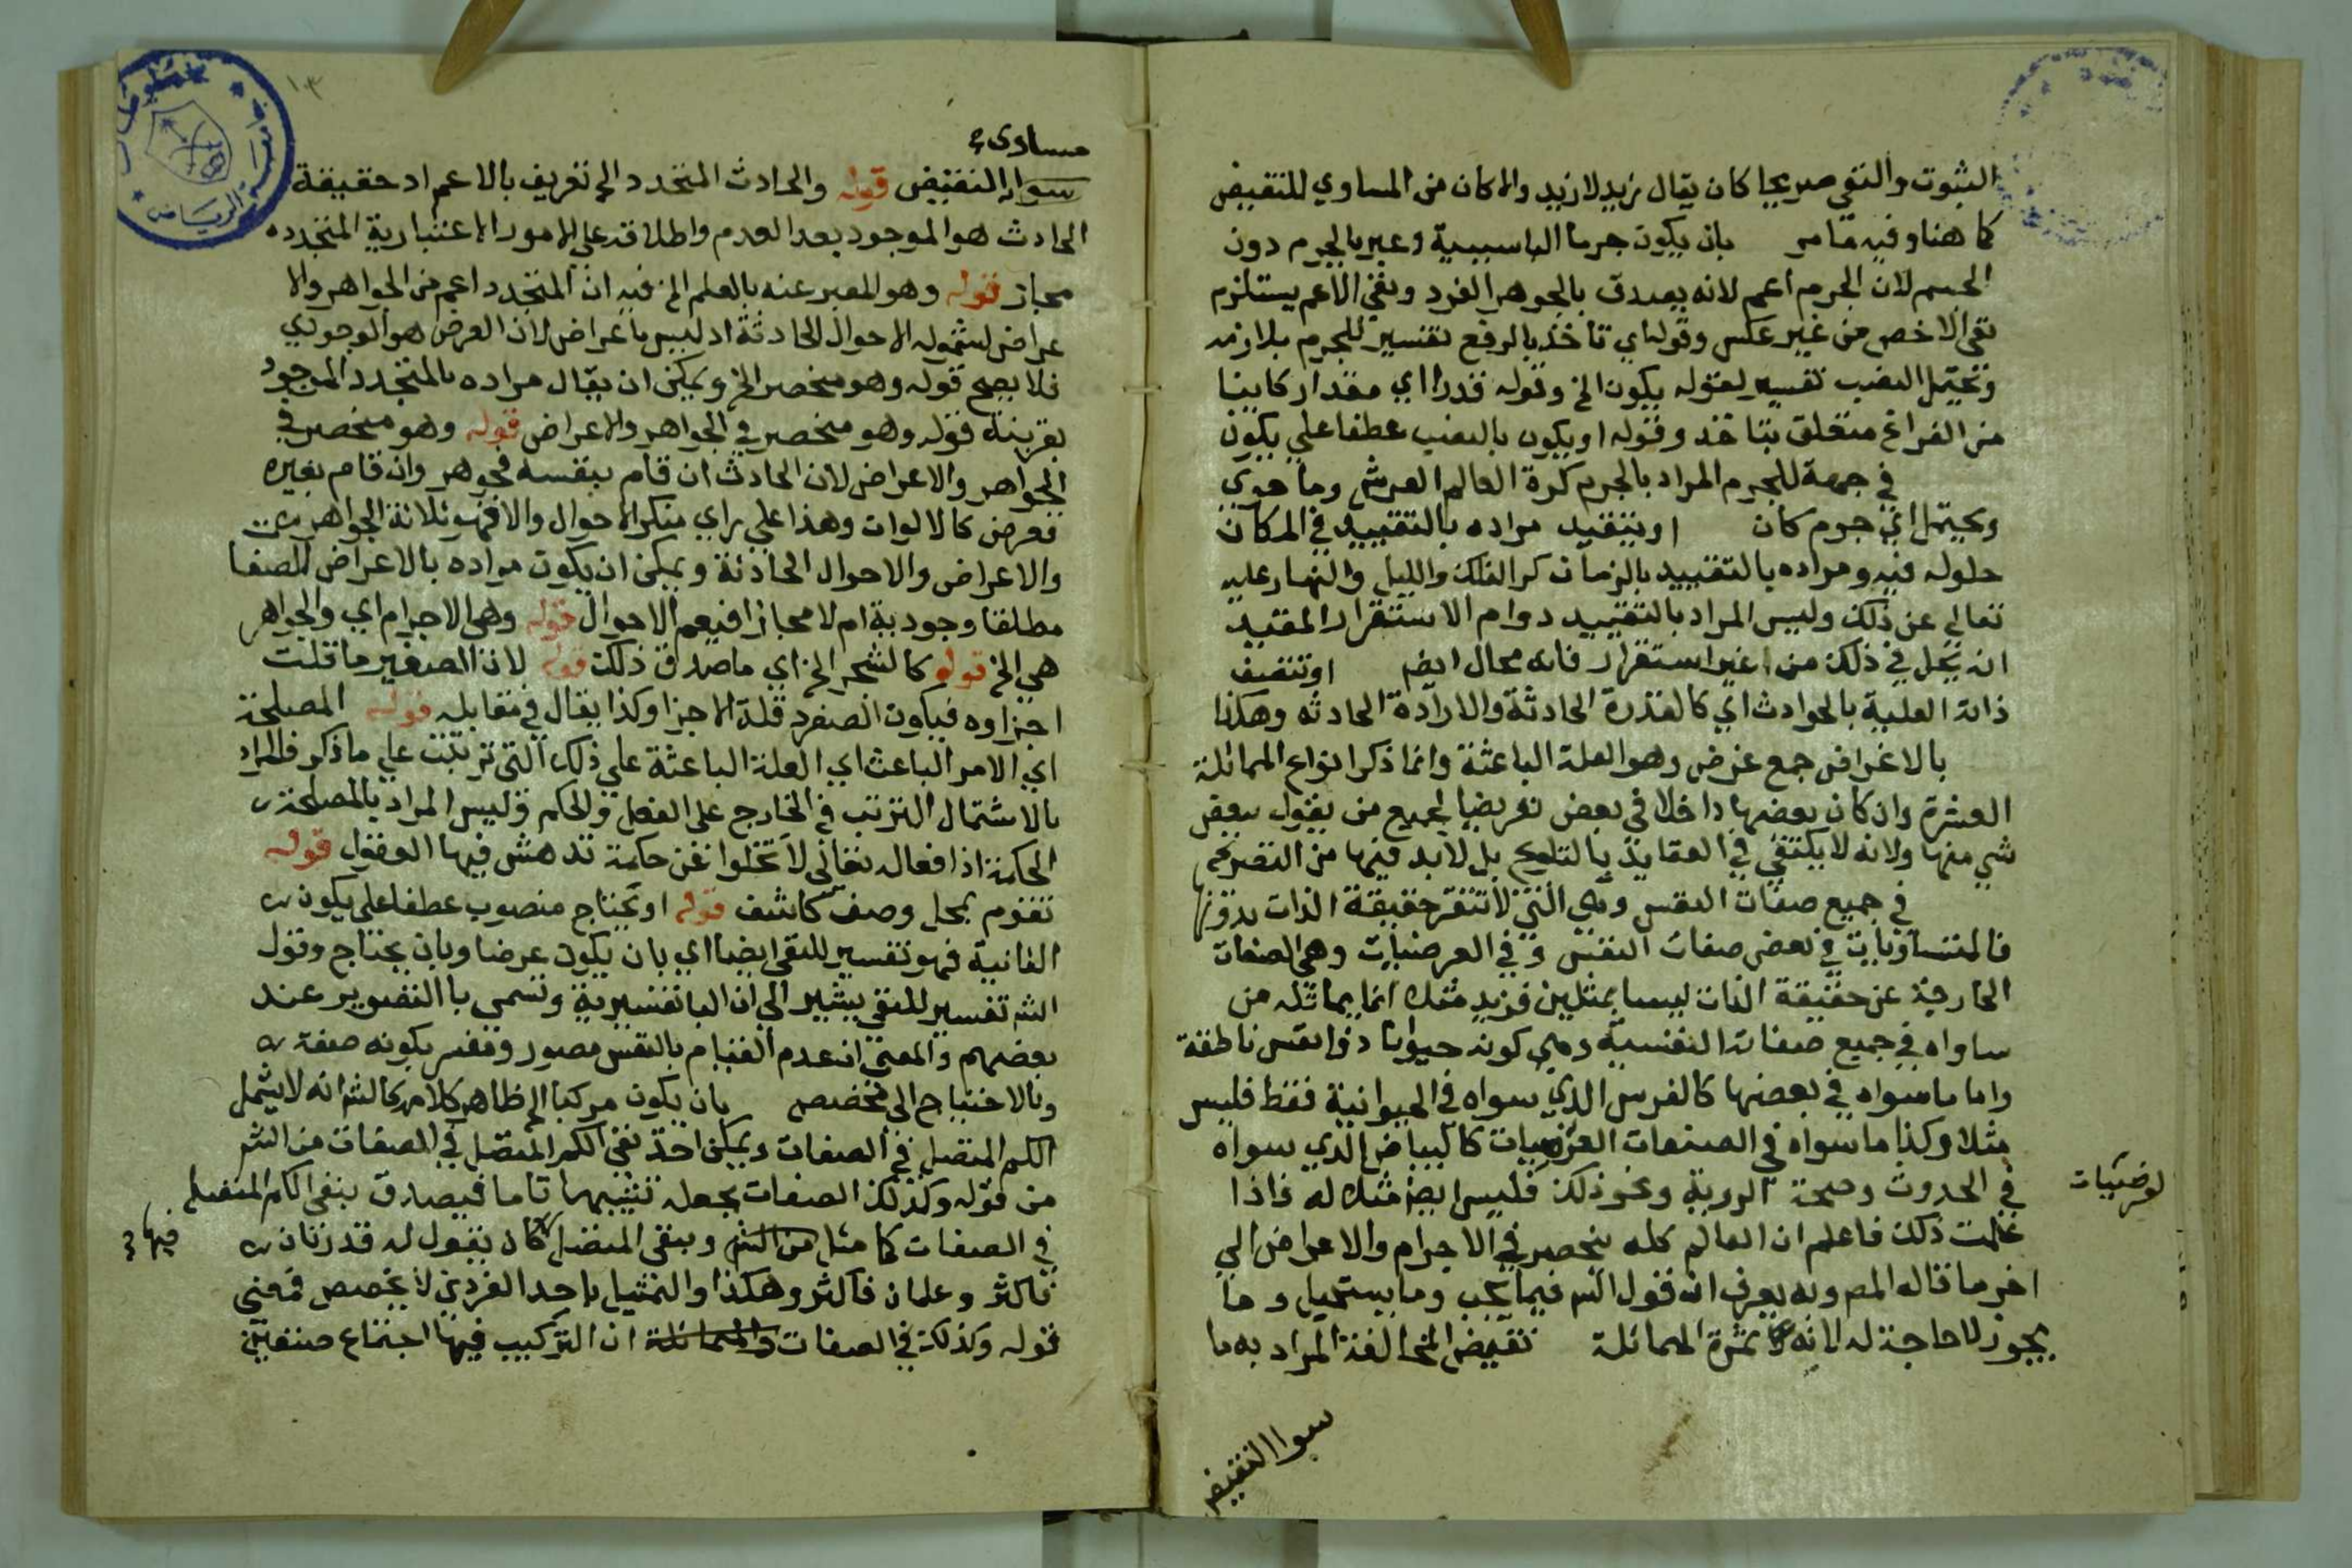 الثبوت والنفي صريحا كان يقال زيد لازيد والا كان من المساوي للنقيض
كما هنا وفيه مامر بان يكون جرما الباسببية وعبر بالجرم دون
الجسم لان الجرم اعم لانه يصدق بالجوهر الفرد ونفي الاعم يستلزم
نفي الاخص من غير عكس وقوله اي تاخذ بالرفع تفسير للجرم بلازمه
وتحتمل النصب تفسير لقوله يكون الخ وقوله قدرا اي مقدار كاينا
من الفراغ متعلق بتاخذ وقوله او يكون بالنصب عطفا علي يكون
في جهة للجرم المراد بالجرم كرة العالم العرش وما حوي
ويحتمل اي جرم كان او يتقيد مراده بالتقييد في المكان
حلوله فيه ومراده بالتقييد بالزمان كر الفلك والليل والنهار عليه
تعالي عن ذلك وليس المراد بالتقييد دوام الاستقرار المقيد
انه يحل في ذلك من غير استقرار فانه محال ايضا او تتصف
ذاته العلية بالحوادث اي كالقدرة الحادثة والارادة الحادثه وهكذا
بالاغراض جمع غرض وهو العلة الباعثة وانما ذكر انواع المماثلة
العشرة وان كان بعضها داخلا في بعض تعريضا لجميع من يقول ببعض
شي منها ولانه لا يكتفي في العقايد بالتلويح بل لابد فيها من التصريح
في جميع صفات النفس وهي التي لا تتقرر حقيقة الذات بدونها
فالمتساويان في بعض صفات النفس وفي العرضيات وهي الصفات
الخارجة عن حقيقة الذات ليسا بمثلين فزيد مثلا انما يماثله من
ساواه في جميع صفاته النفسية وهي كونه حيوانا ذا نفس ناطقة
واما ما سواه في بعضها كالفرس الذي سواه في الحيوانية فقط فليس
مثلا وكذا ما سواه في الصفات العرضيات كالبياض الذي سواه
لعرضيات
في الحدوث وصحة الروية ونحو ذلك فليس ايضا مثلا له فاذا
علمت ذلك فاعلم ان العالم كله ينحصر في الاجرام والاعراض الي
اخر ما قاله المص وبه يعرف ان قول الش فيما يجب وما يستحيل وما
يجوز لا حاجة له لانه ثمرة المماثلة نقيض المخالفة المراد به ما
سوا النقيض
١٣
مساوي
سوا النقيض قوله والحادث المتجدد الخ تعريف بالاعم اذ حقيقة
الحادث هو الموجود بعد العدم واطلاقه علي الامور الاعتبارية المتجدده
مجاز قوله وهو المعبر عنه بالعلم الخ فيه ان المتجدد اعم من الجواهر والا
عراض لشموله الاحوال الحادثة اذ ليس باعراض لان العرض هو الوجودي
فلا يصح قوله وهو منحصر الخ ويمكن ان يقال مراده بالمتجدد الموجود
بقرينة قوله وهو منحصر في الجواهر والاعراض قوله وهو منحصر في
الجواهر والاعراض لان الحادث ان قام بنفسه فجوهر وان قام بغيره
فعرض كالالوان وهذا علي راي منكر الاحوال والا فهو ثلاثة الجواهر
والاعراض والاحوال الحادثة ويمكن ان يكون مراده بالاعراض الصفا
مطلقا وجودية ام لا مجازا فيعم الاحوال قوله وهي الاجرام اي والجواهر
هي الخ قوله كالشجر الخ اي ماصدق ذلك قوله لان الصغير ما قلت
اجزاوه فيكون الصغر قلة الاجزا وكذا يقال في مقابله قوله المصلحة
اي الامر الباعث اي العلة الباعثة علي ذلك التي تربت علي ما ذكر فالمراد
بالاشتمال الترتب في الخارج علي الفعل والحكم وليس المراد بالمصلحة
الحكمة اذ افعاله تعالي لا تخلوا عن حكمة تدهش فيها العقول قوله
تقوم بمحل وصف كاشف قوله او تحتاج منصوب عطفا علي يكون
الثانية فهو تفسير للنفي ايضا اي بان يكون عرضا وبان يحتاج وقول
الش تفسير للنفي يشير الي ان البا تفسيرية وتسمي با التصوير عند
بعضهم والمعني ان عدم القيام بالنفس مصور ومفسر بكونه صفة
وبالاحتياج الي مخصص بان يكون مركبا الخ ظاهر كلامه كالش انه لا يشمل
الكم المتصل في الصفات ويمكن اخذ نفي الكم المتصل في الصفات من الش
من قوله وكذلك الصفات بجعله تشبيها تاما فيصدق بنفي الكم المتصل
فيها
في الصفات كما مثل من الش وبنفي المنفصل كان يقول له قدرتان
فاكثر وعلمان فاكثر وهكذا والتمثيل باحد الفردين لا يخصص فمعني
قوله وكذلك في الصفات والمماثلة ان التركيب فيها اجتماع صفتين